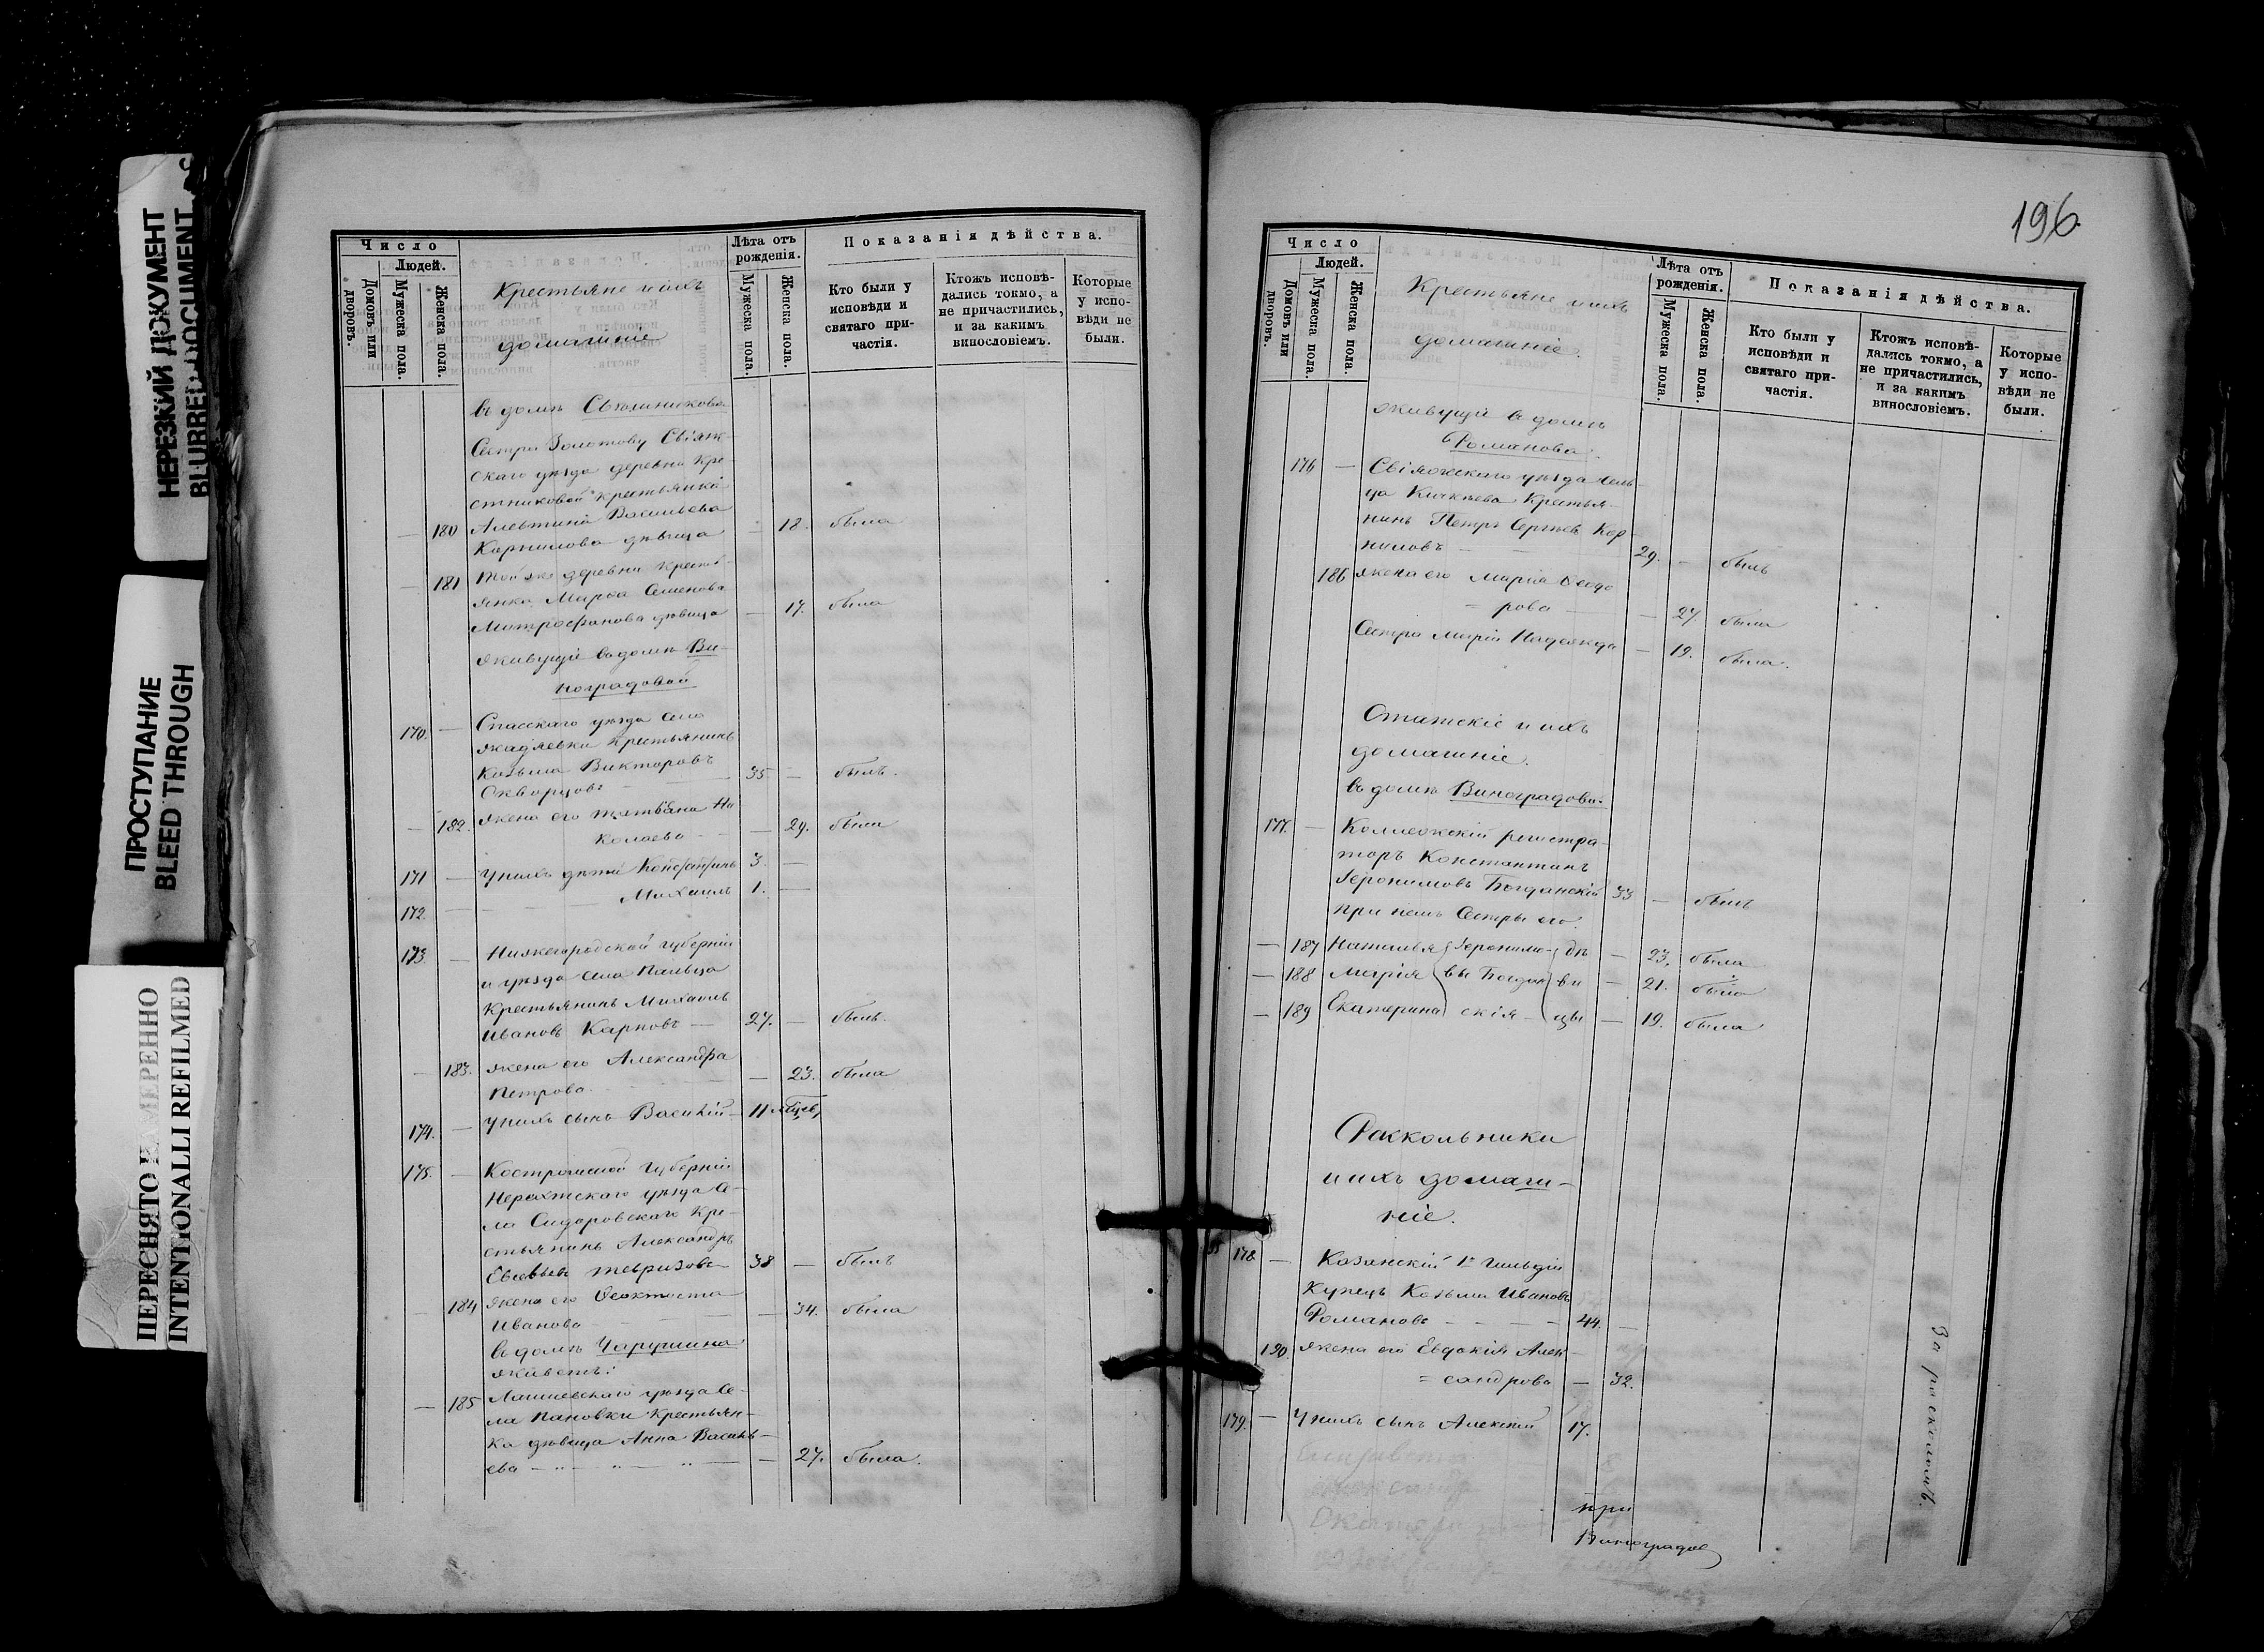 НЕРЕЗКИЙ ДОКУМЕНТ
BLURRED DOCUMENT
ПРОСТУПАНИЕ
BLEED THROUGH
ПЕРЕСНЯТО НАМЕРЕННО
INTENTIONALLI REFILMED
Число
Людей.
Домовъ или дворовъ.
Мужеска пола.
Женска пола.
Крестьяне и ихъ
домашніе
Лѣта отъ рожденія.
Мужеска пола.
Женска пола.
Показанія дѣйства.
Кто были у исповѣди и святаго причастія.
Ктожъ исповѣдались токмо, а не причастились, и за какимъ винословіемъ.
Которые у исповѣди не были.
въ домѣ
Сестра Золотову Свіяж-
скаго уѣзда деревни Кре-
стниковой крестьянка
180 Алевтина Васильева
Корнилова дѣвица — 18. была
— 181 Той же деревни кресть-
янка Марѳа Семенова
Митрофанова дѣвица — 17. была
живущіе въ домѣ Ви-
ноградовой
170. — Спасскаго уѣзда села
Жадяевки крестьянинъ
Козьма Викторовъ
Скворцовъ 35 — былъ.
— 182. жена его Татьяна Ни
колаева — 29. была
171 — У нихъ дѣти Константинъ 3. —
172. — Михаилъ 1. —
173. — Нижегородской губерніи
и уѣзда села Пальца
Крестьянинъ Михаилъ
Ивановъ Карповъ — 27. — былъ.
— 183. жена его Александра
Петрова — 23. была
174. — У нихъ сынъ Василій — 11 мѣсяцев,
175. — Костромской губерніи
Нерехтскаго уѣзда Се-
ла Сидоровскаго Кре-
стьянинъ Александръ
Евсевьевъ 38 — былъ
— 184 жена его Ѳеоктиста
Иванова — 34. была
въ домѣ Чарушина
живетъ:
— 185 Лаишевскаго уѣзда Се-
ла Пановки Крестьян-
ка дѣвица Анна Василь-
ева — 27. была.
196
Число
Людей.
Домовъ или дворовъ.
Мужеска пола.
Женска пола.
Крестьяне и ихъ
домашніе.
Лѣта отъ рожденія.
Мужеска пола.
Женска пола.
Показанія дѣйства.
Кто были у исповѣди и святаго причастія.
Ктожъ исповѣдались токмо, а не причастились, и за какимъ винословіемъ.
Которые у исповѣди не были.
живущіе въ домѣ
Романова.
176 — Свіяжскаго уѣзда Сель-
ца Кичкѣева Крестья-
нинъ Петръ Сергѣевъ Кор-
ниловъ — 29. — былъ
186 жена его Марія Ѳеодо
= рова — — 27. была
Сестра Маріи Надежда — 19. была.
Статскіе и ихъ
домашніе.
въ домѣ Виноградовой.
177. — Коллежскій регистра-
торъ Константинъ
Іеронимовъ Богданскій 33 — былъ
при немъ Сестры его:
— 187 Наталья Іеронимо- дѣ — 23. была
— 188 Марія вы Богдан ви — 21. была
— 189 Екатерина скія — цы — 19. была
Раскольники
и ихъ домаш-
ніе.
178. — Казанскій 1й гильдіи
Купецъ Козьма Ивановъ
Романовъ — 44. —
190. жена его Евдокія Алек-
= сандрова — 32.
179. — У нихъ сынъ Алексѣй 17.
За расколомъ.
при
Виноградов